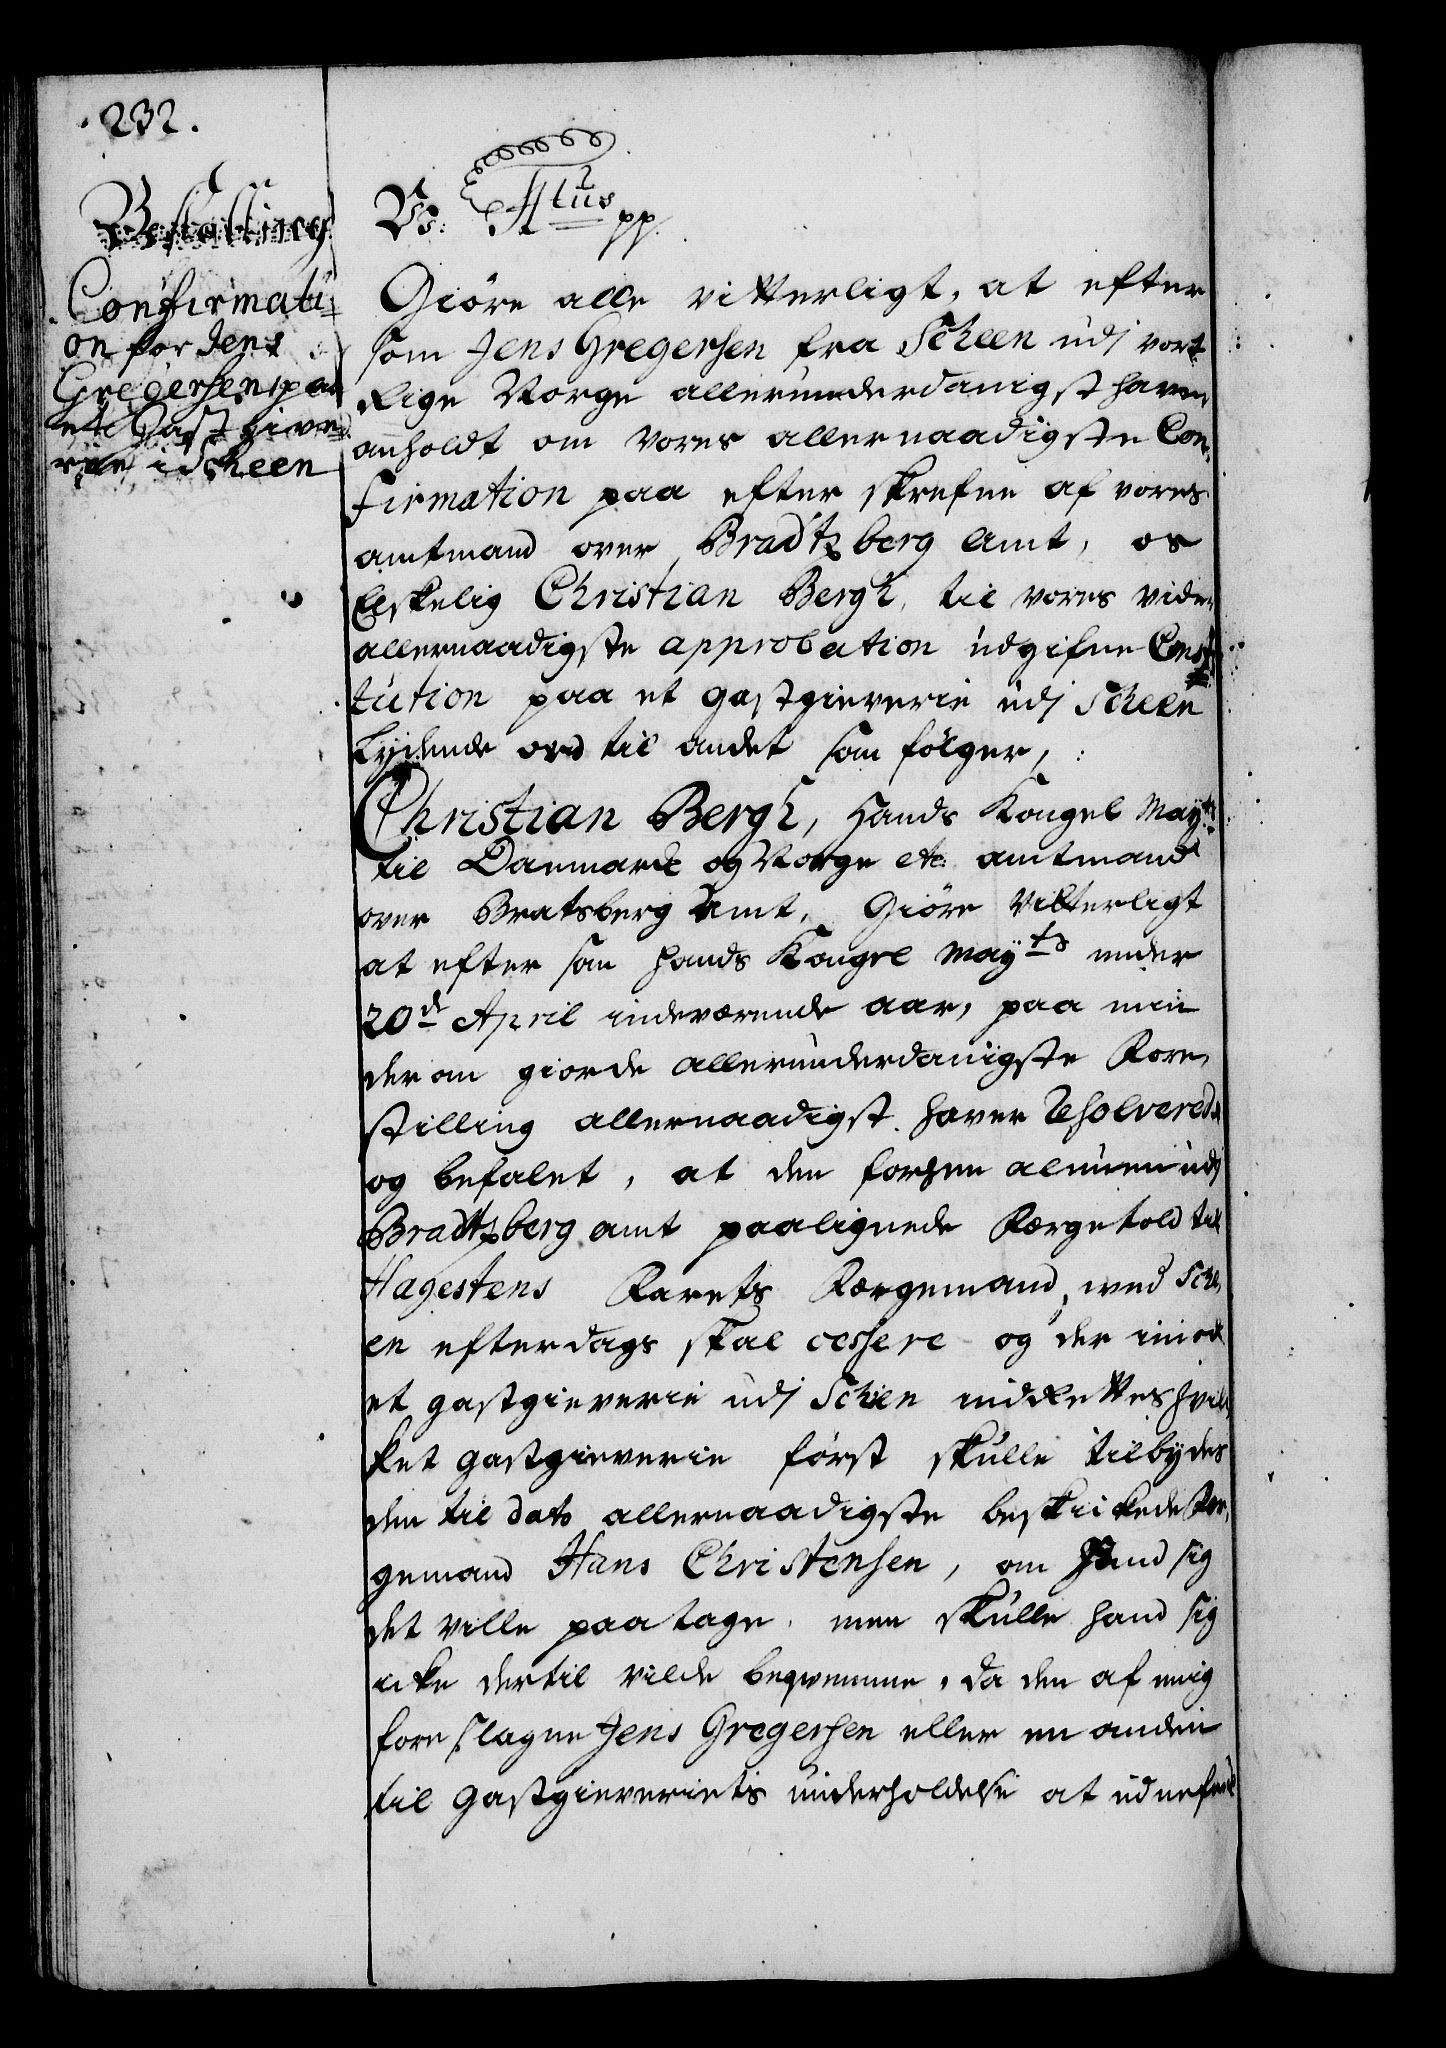 232.
Bestalling
Confirmati=
on for Jens
Gregersen paa
et Gastgive=
rie i Scheen
Vs: F 4tus pp.
Giöre alle vitterligt, at efter
som Jens Gregersen fra Scheen udj vort
Rige Norge allerunderdanigst haver
anholdt om vores allernaadigste Con=
firmation paa efterskrefne af vores
amtmand over Bradtzberg Amt, os
Elskelig Christian Bergh, til vores videre
allernaadigste approbation udgifne Consti=
tution paa et gastgieverie udj Scheen
Lydende ord til andet som fölger,:
Christian Bergh, Hands Kongel Mayts
til Danmark og Norge etc: amtmand
over Bratsberg Amt, Giöre Vitterligt
at efter som Hands Kongel Mayts under
20d April indeværende aar, paa min
derom giorde allerunderdanigste Fore=
stilling allernaadigst haver Resolveredt
og befalet, at den forhen almuen udj
Bradtzberg amt paalignede Færgetold til
Hagestens Farets Færgemand, wed Sche=
en efterdags skal cessere og der imod
et gastgieverie udj Schien indrettes hvil=
ket gastgieverie först skulle tilbydes
den til dato allernaadigste beskickede Fær=
gemand Hans Christensen, om Hand sig
det ville paatage, men skulle hand sig
icke dertil vilde beqvemme, da den af mig
foreslagne Jens Gregersen eller en anden
til gastgieveriets underholdelse at udnefne